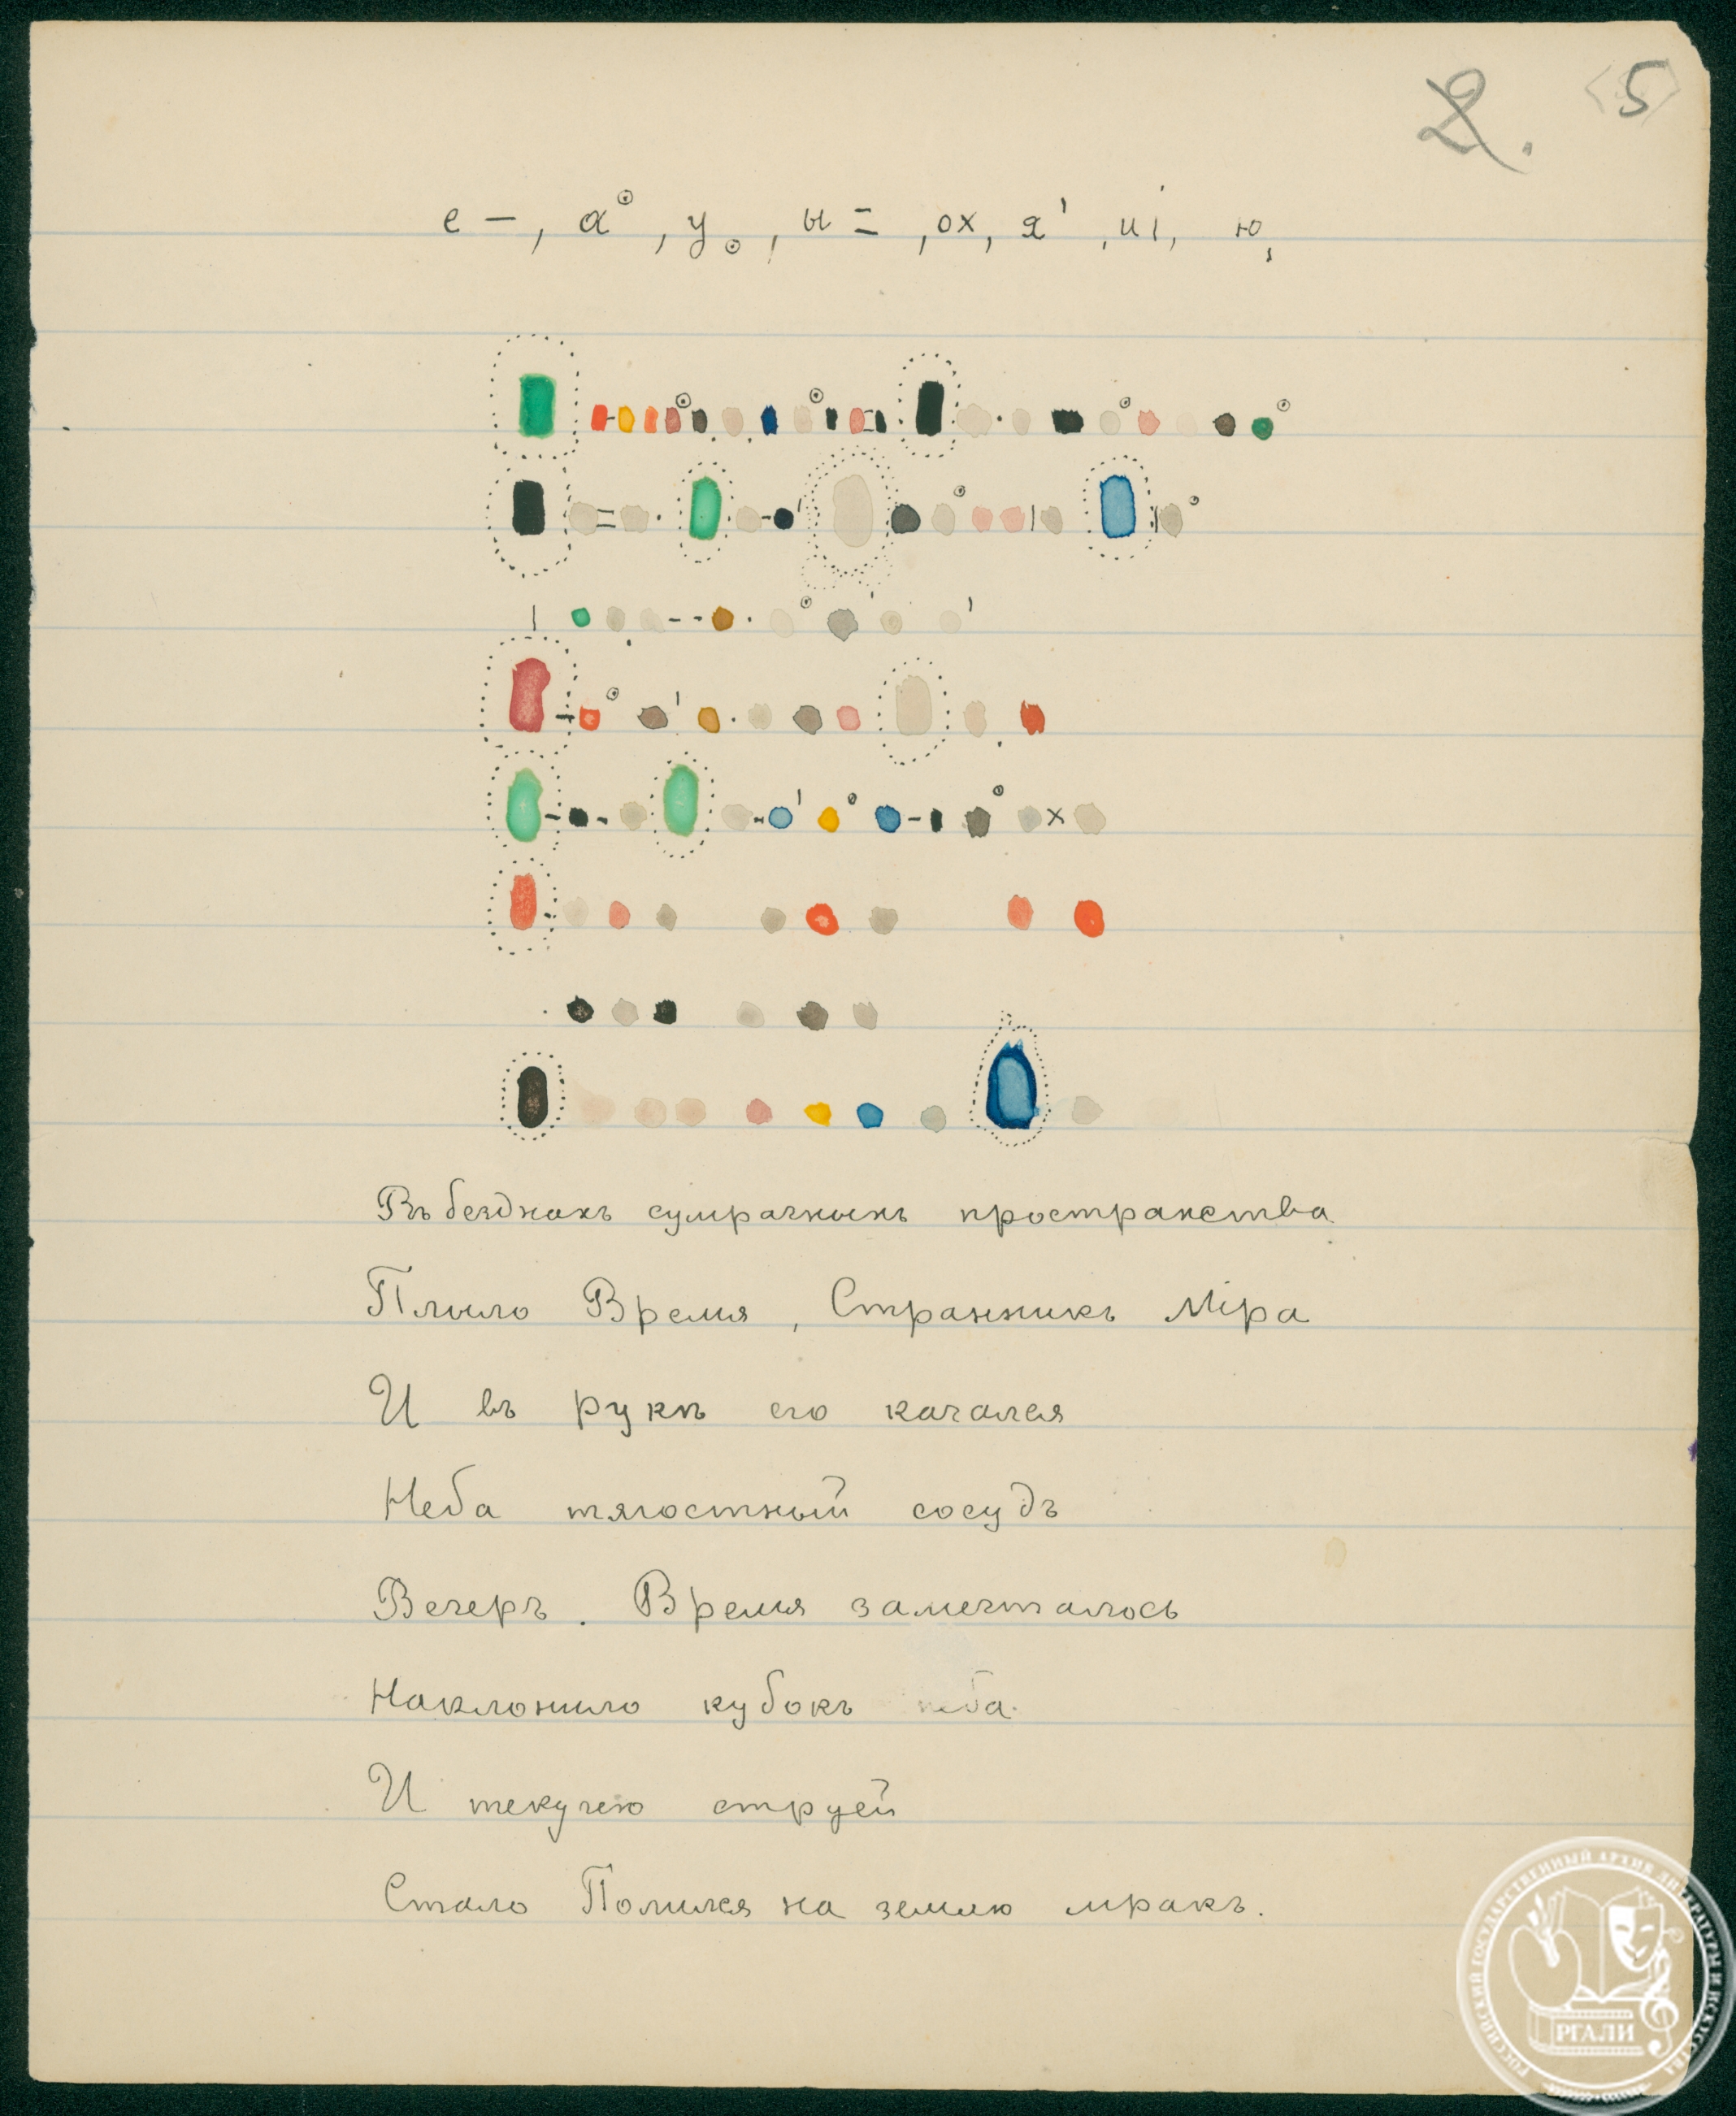 2. <5>
е –, а°, у。, ы =, ох, я ', и ı, ю,
Въ безднахъ сумрачныхъ пространства
Плыло Время, Странникъ Мiра
И въ рукѣ его качался
Неба тягостный сосудъ
Вечеръ. Время замечталось
Наклонило кубокъ неба.
И текучею струей
Стало Полился на землю мракъ.
РОССИЙСКИЙ ГОСУДАРСТВЕННЫЙ АРХИВ ЛИТЕРАТУРЫ И ИСКУССТВА
РГАЛИ